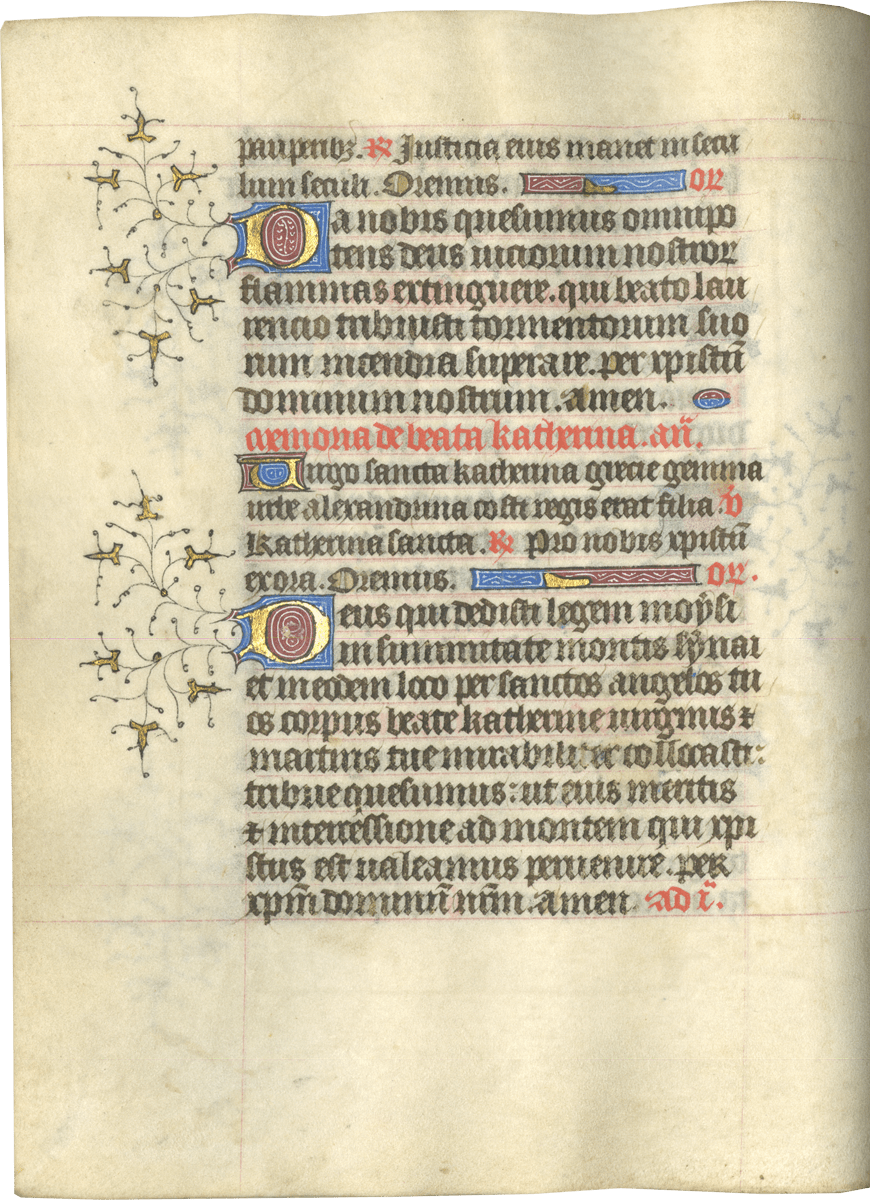 pauperibꝫ. ℟ Iusticia eius manet in secu
lum seculi. Oremus. or
Da nobis quesumus omnipo
tens deus uiciorum nostror
flammas extinguere. qui beato lau
rencio tribuisti tormentorum suo
rum incendia superare. per xpistū
dominum nostrum. amen.
memoria de beata katherina. añ.
Uirgo sancta katherina grecie gemma
urbe alexandrina costi regis erat filia. ℣
Katherina sancta. ℟ Pro nobis xpistū
exora. Oremus. or.
Deus qui dedisti legem moẏsi
in summitate montis sẏnai
et in eodem loco per sanctos angelos tu
os corpus beate katherine uirginis ⁊
martiris tue mirabiliter collocasti:
tribue quesumus: ut eius meritis
⁊ intercessione ad montem qui xpi
stus est ualeamus peruenire. per
xpm̄ dominū nr̄m. amen. ad ī.